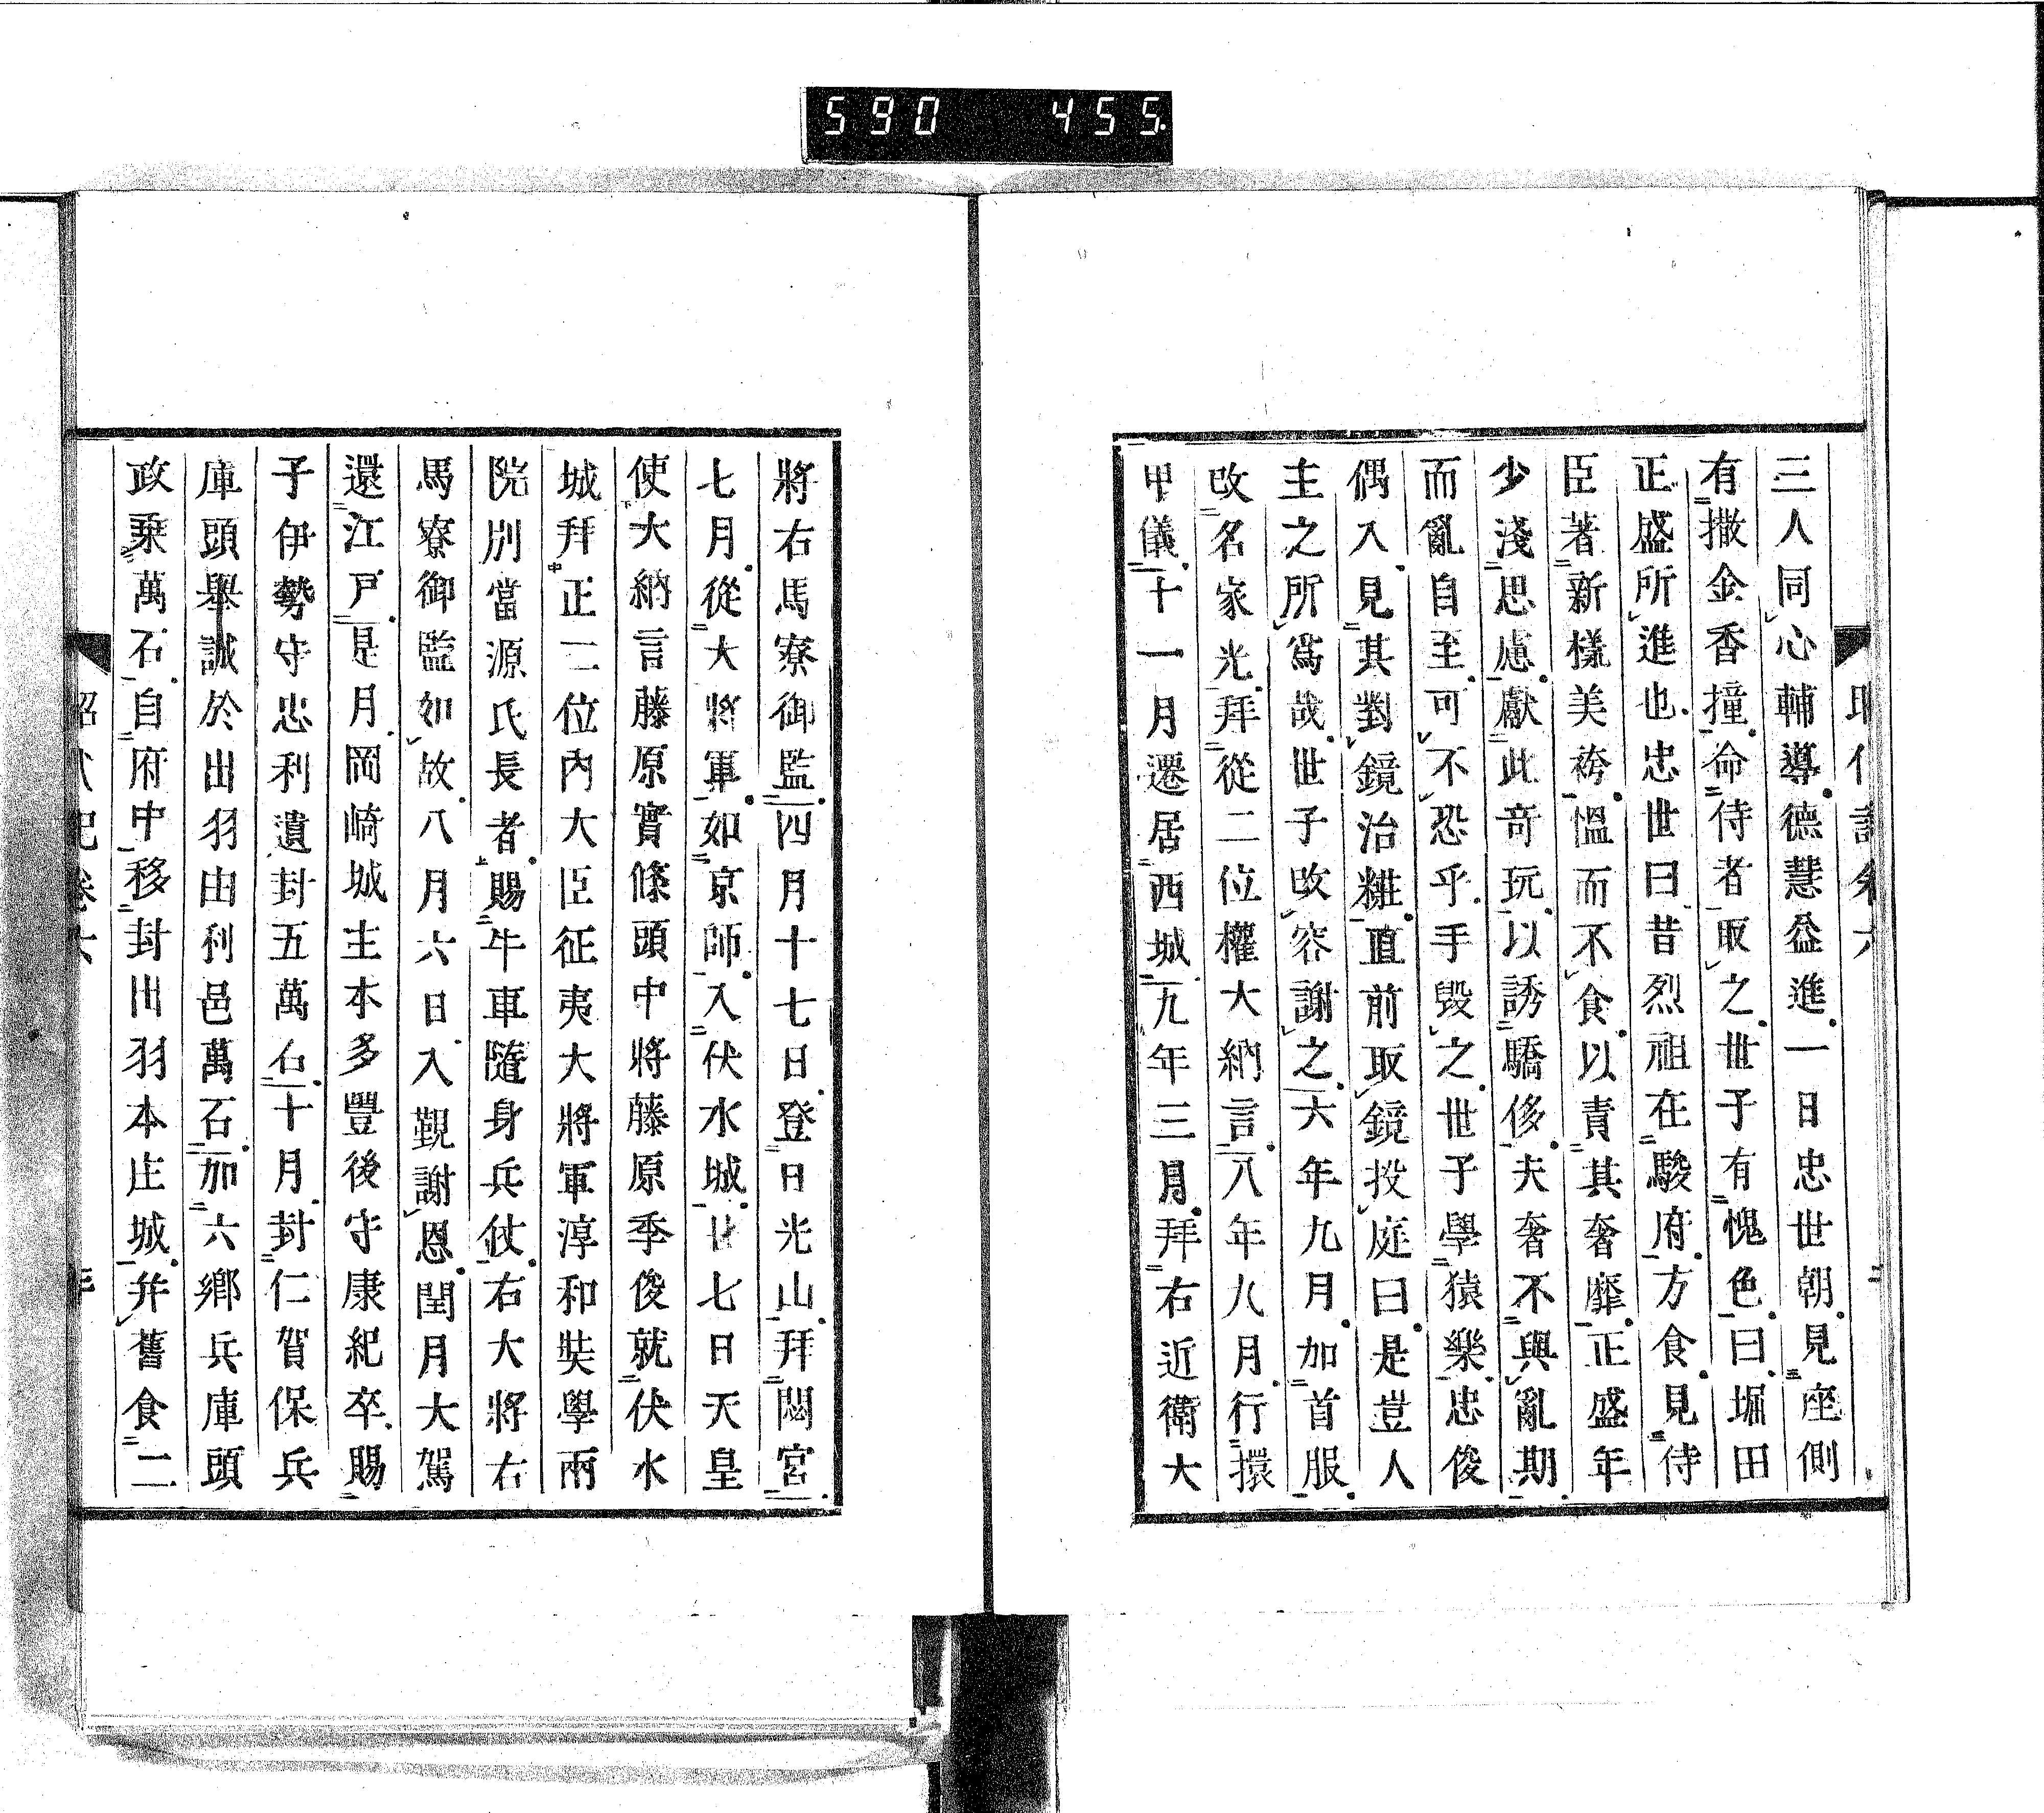 590 455
三人同心輔導德慧益進一日忠世朝見座側
有撒金香撞命侍者取之世子有愧色曰堀田
正盛所進也忠世曰昔烈祖在駿府方食見侍
臣著新樣美袴慍而不食以責其奢靡正盛年
少淺思慮獻此奇玩以誘驕侈夫奢不與亂期
而亂自至可不恐乎手毀之世子學猿樂忠俊
偶入見其對鏡治糚直前取鏡投庭曰是豈人
主之所爲哉世子改容謝之六年九月加首服
改名家光拜從二位權大納言八年九月行擐
甲儀十一月遷居西城九年三月拜右近衛大
將右馬寮御監四月十七日登日光山拜閟宮
七月從大將軍如京師入伏水城廿七日天皇
使大納言藤原實條頭中將藤原季俊就伏水
城拜正二位內大臣征夷大將軍淳和奘學兩
院別當源氏長者賜牛車隨身兵仗右大將右
馬寮御監如故八月六日入覲謝恩閏月大駕
還江戸是月岡崎城主本多豐後守康紀卒賜
子伊勢守忠利遺封五萬石十月封仁賀保兵
庫頭舉誠於出羽由利邑萬石加六鄉兵庫頭
政乗萬石自府中移封出羽本庄城并舊食二